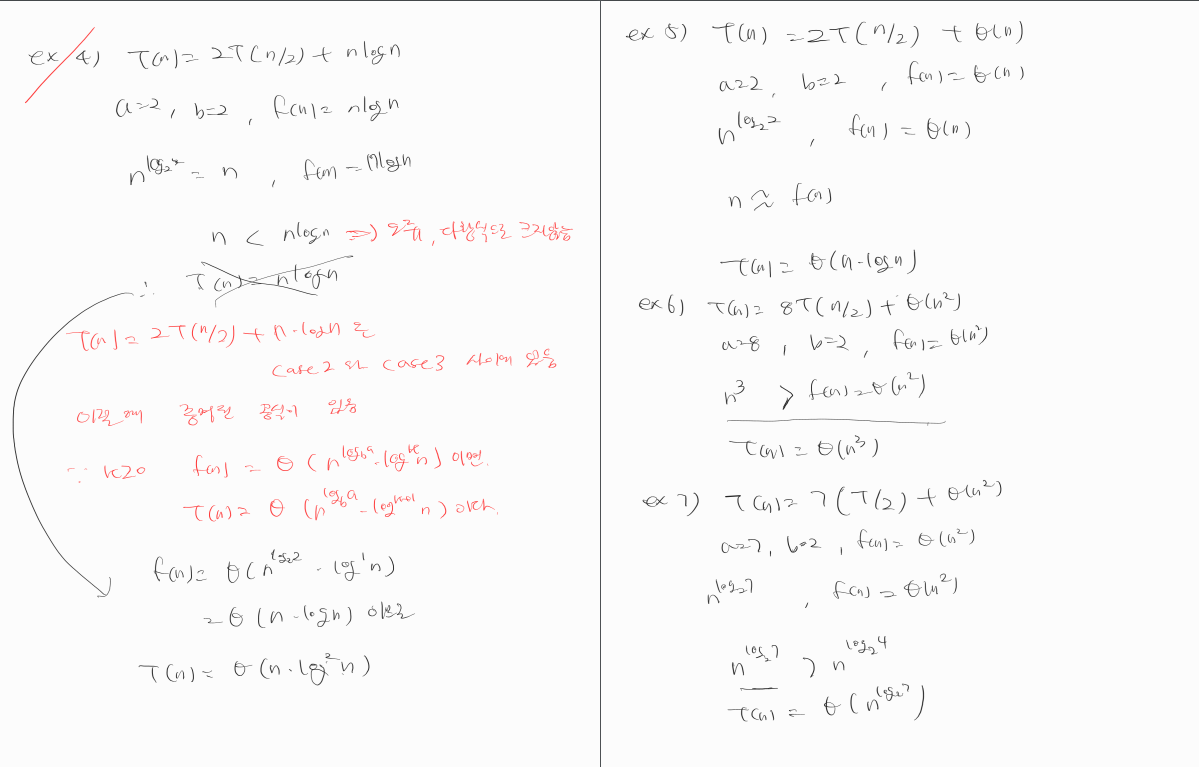 ex 4) T(n) = 2T(n/2) + nlogn
a=2, b=2, f(n) = nlogn
n^log₂ = n, f(n) = nlogn
n < nlogn ⇒ 다항식으로 크지않음
∴ T(n) = nlogn
T(n) = 2T(n/2) + n·logn 은
case2 와 case3 사이에 있음
이럴 때 공식이 있음
∵ k≥0 f(n) = θ(n^log_b a · log^k n) 이면.
T(n) = θ(n^log_b a · log^k+1 n) 이다.
f(n) = θ(n^log₂2 · log¹n)
= θ(n·logn) 이므로
T(n) = θ(n·log²n)
ex 5) T(n) = 2T(n/2) + θ(n)
a=2, b=2, f(n) = θ(n)
n^log₂2, f(n) = θ(n)
n ≈ f(n)
T(n) = θ(n·logn)
ex 6) T(n) = 8T(n/2) + θ(n²)
a=8, b=2, f(n) = θ(n²)
n³ > f(n) = θ(n²)
T(n) = θ(n³)
ex 7) T(n) = 7(T/2) + θ(n²)
a=7, b=2, f(n) = θ(n²)
n^log₂7, f(n) = θ(n²)
n^log₂7 > n^log₂4
T(n) = θ(n^log₂7)